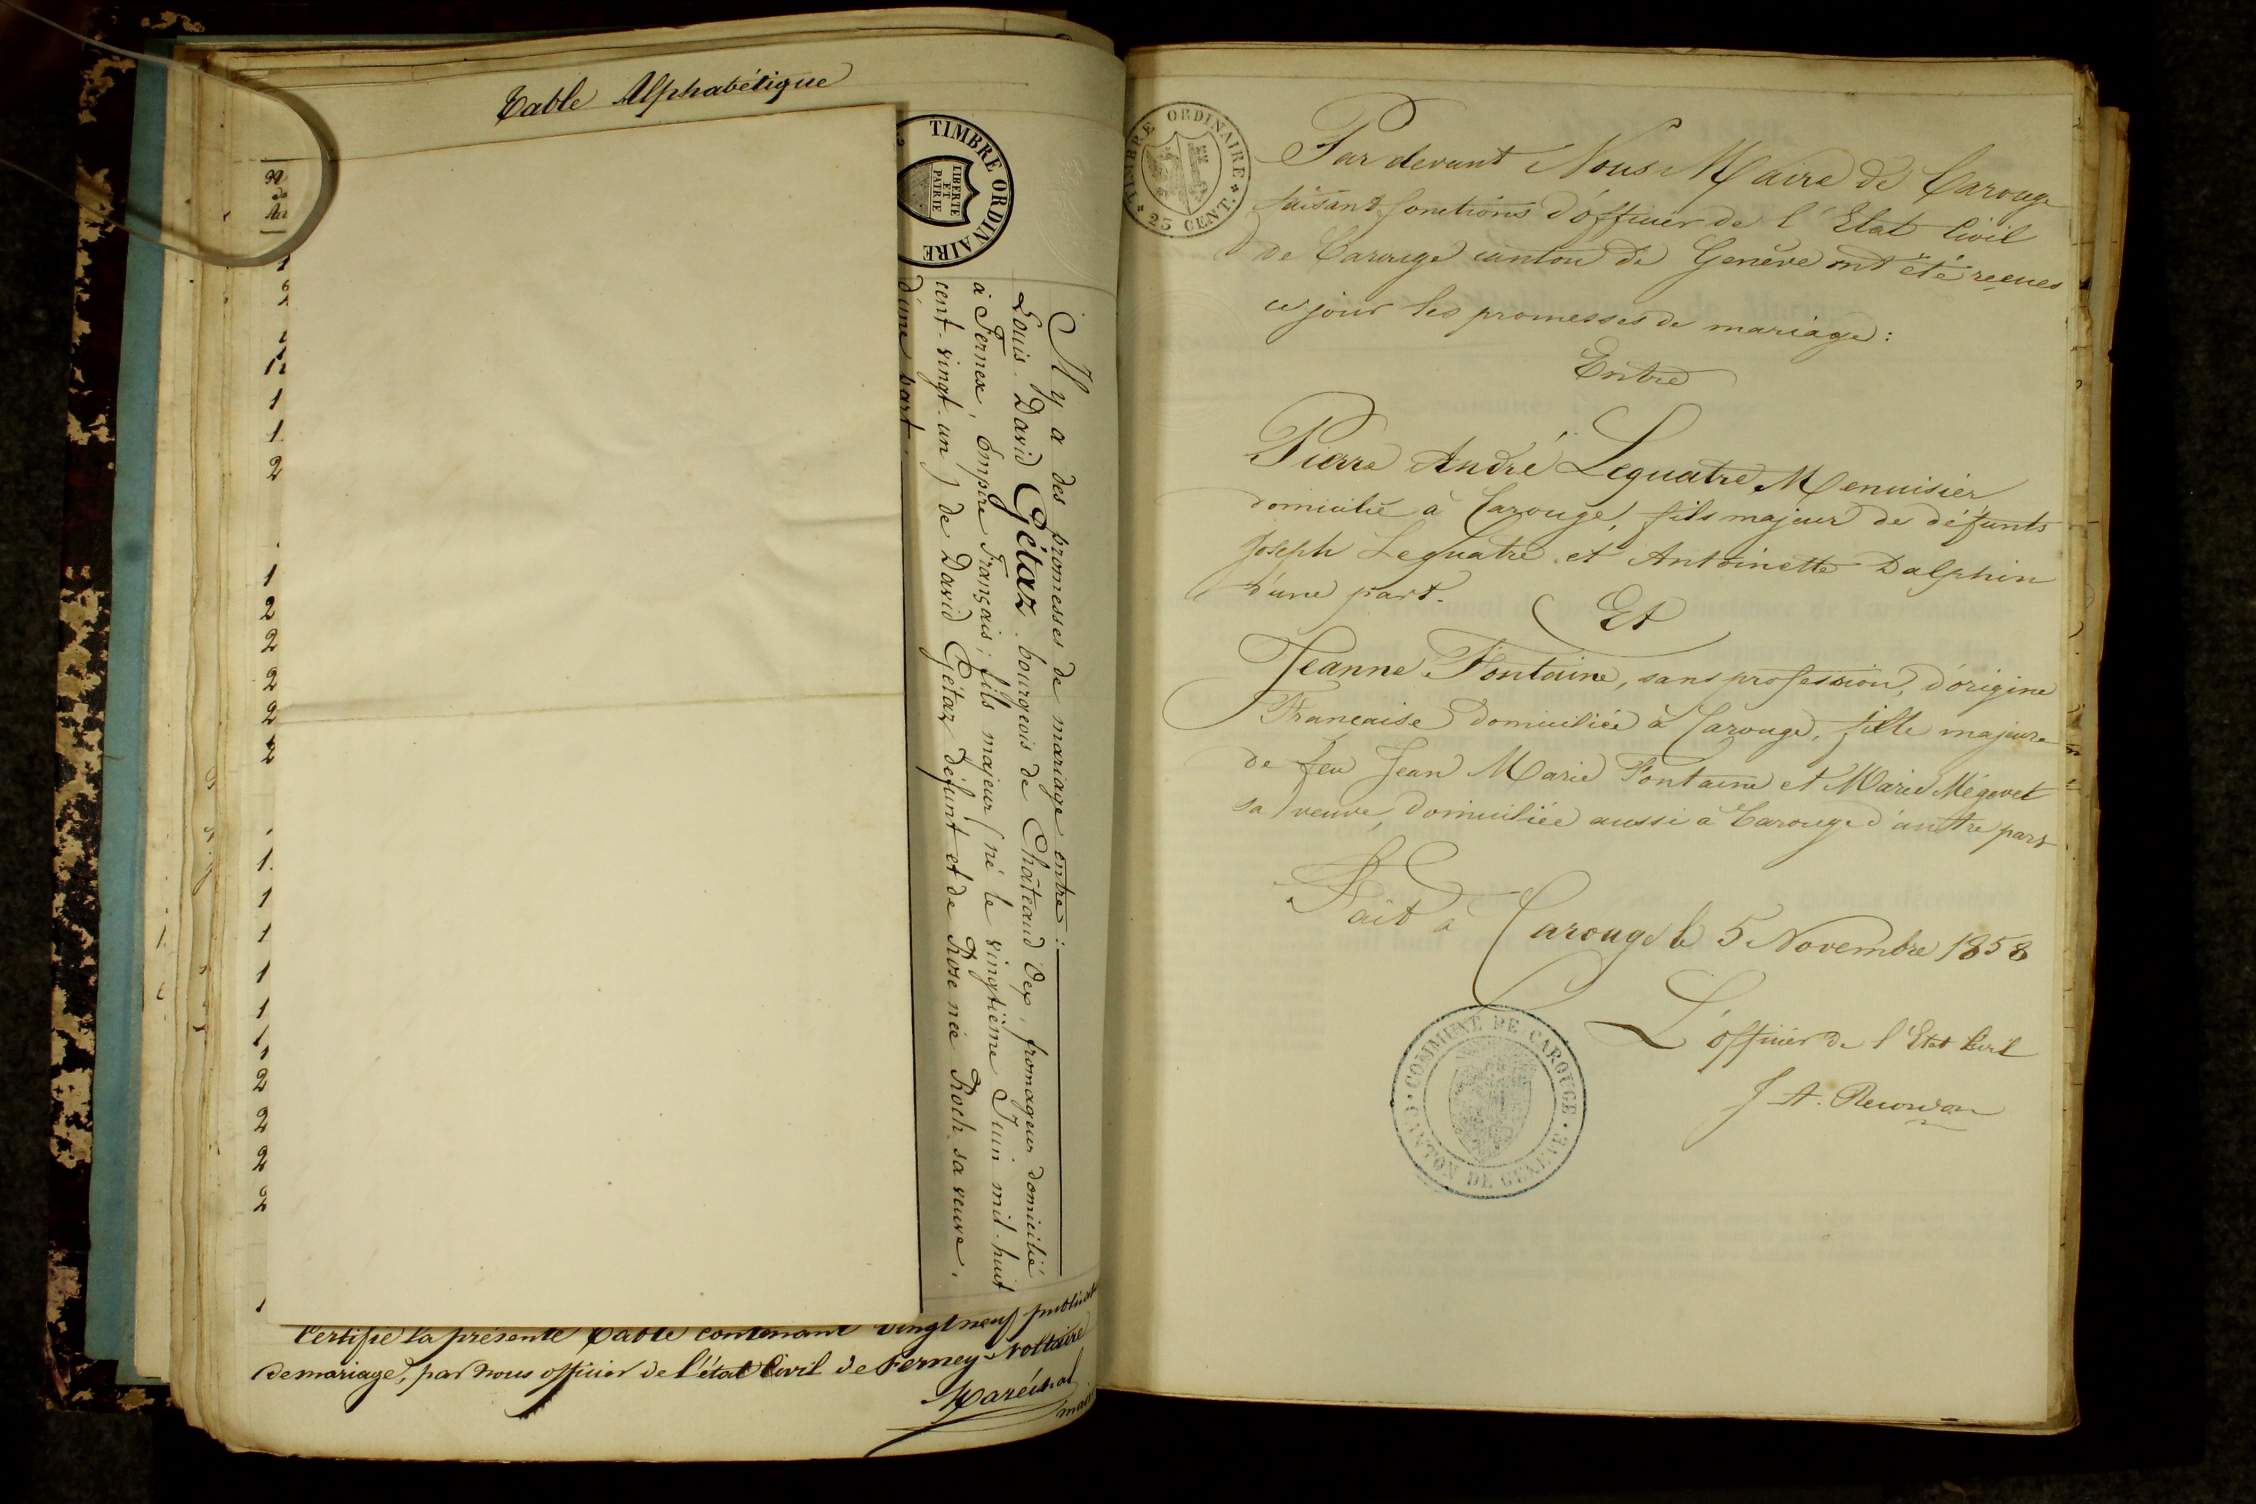 Table Alphabétique
TIMBRE ORDINAIRE
LIBERTE
ET
PATRIE
Il y a des promesses de mariage entre :
Louis David Gétaz, bourgeois de Châteaud'Oex, fromageur domicilié
à Fernex, Empire Français; fils majeur (né le vingtième Juin mil-huit
cent-vingt-un) de David Gétaz défunt et de Rose née Roch sa veuve,
d'une part.
Certifié la présente Table contenant vingt neuf
de mariage, par nous officier de l'état Civil de Ferney-Voltaire
Maréchal
TIMBRE ORDINAIRE
25 CENT.
Par devant Nous Maire de Carouge
faisant fonctions d'officier de l'Etat Civil
de Carouge canton de Genève ont été reçues
ce jour les promesses de mariage :
Entre
Pierre André Lequatre, Menuisier
domicilié à Carouge, fils majeur de défunts
Joseph Lequatre et Antoinette Dalphin
d'une part.
Et
Jeanne Fontaine, sans profession, d'origine
Française domiciliée à Carouge, fille majeure
de feu Jean Marie Fontaine et Marie Mégevet
sa veuve, domiciliée aussi à Carouge d'autre part
Fait à Carouge le 5 Novembre 1858
L'officier de l'Etat Civil
COMMUNE DE CAROUGE
CANTON DE GENEVE